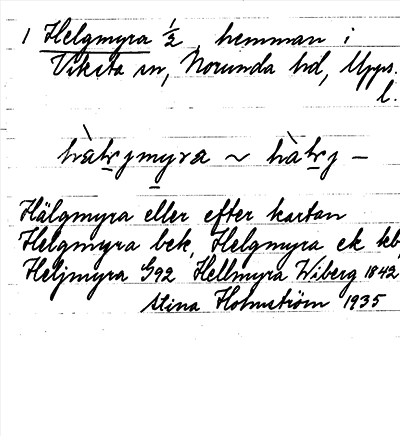 1 Helgmyra 1/2, hemman i
Viksta sn, Norunda hd, Upps.
l.
Hälgmyra eller efter kartan
Helgmyra bek, Helgmyra ek kb,
Heljmyra G92 Hellmyra Wiberg 1842
Stina Holmström 1935